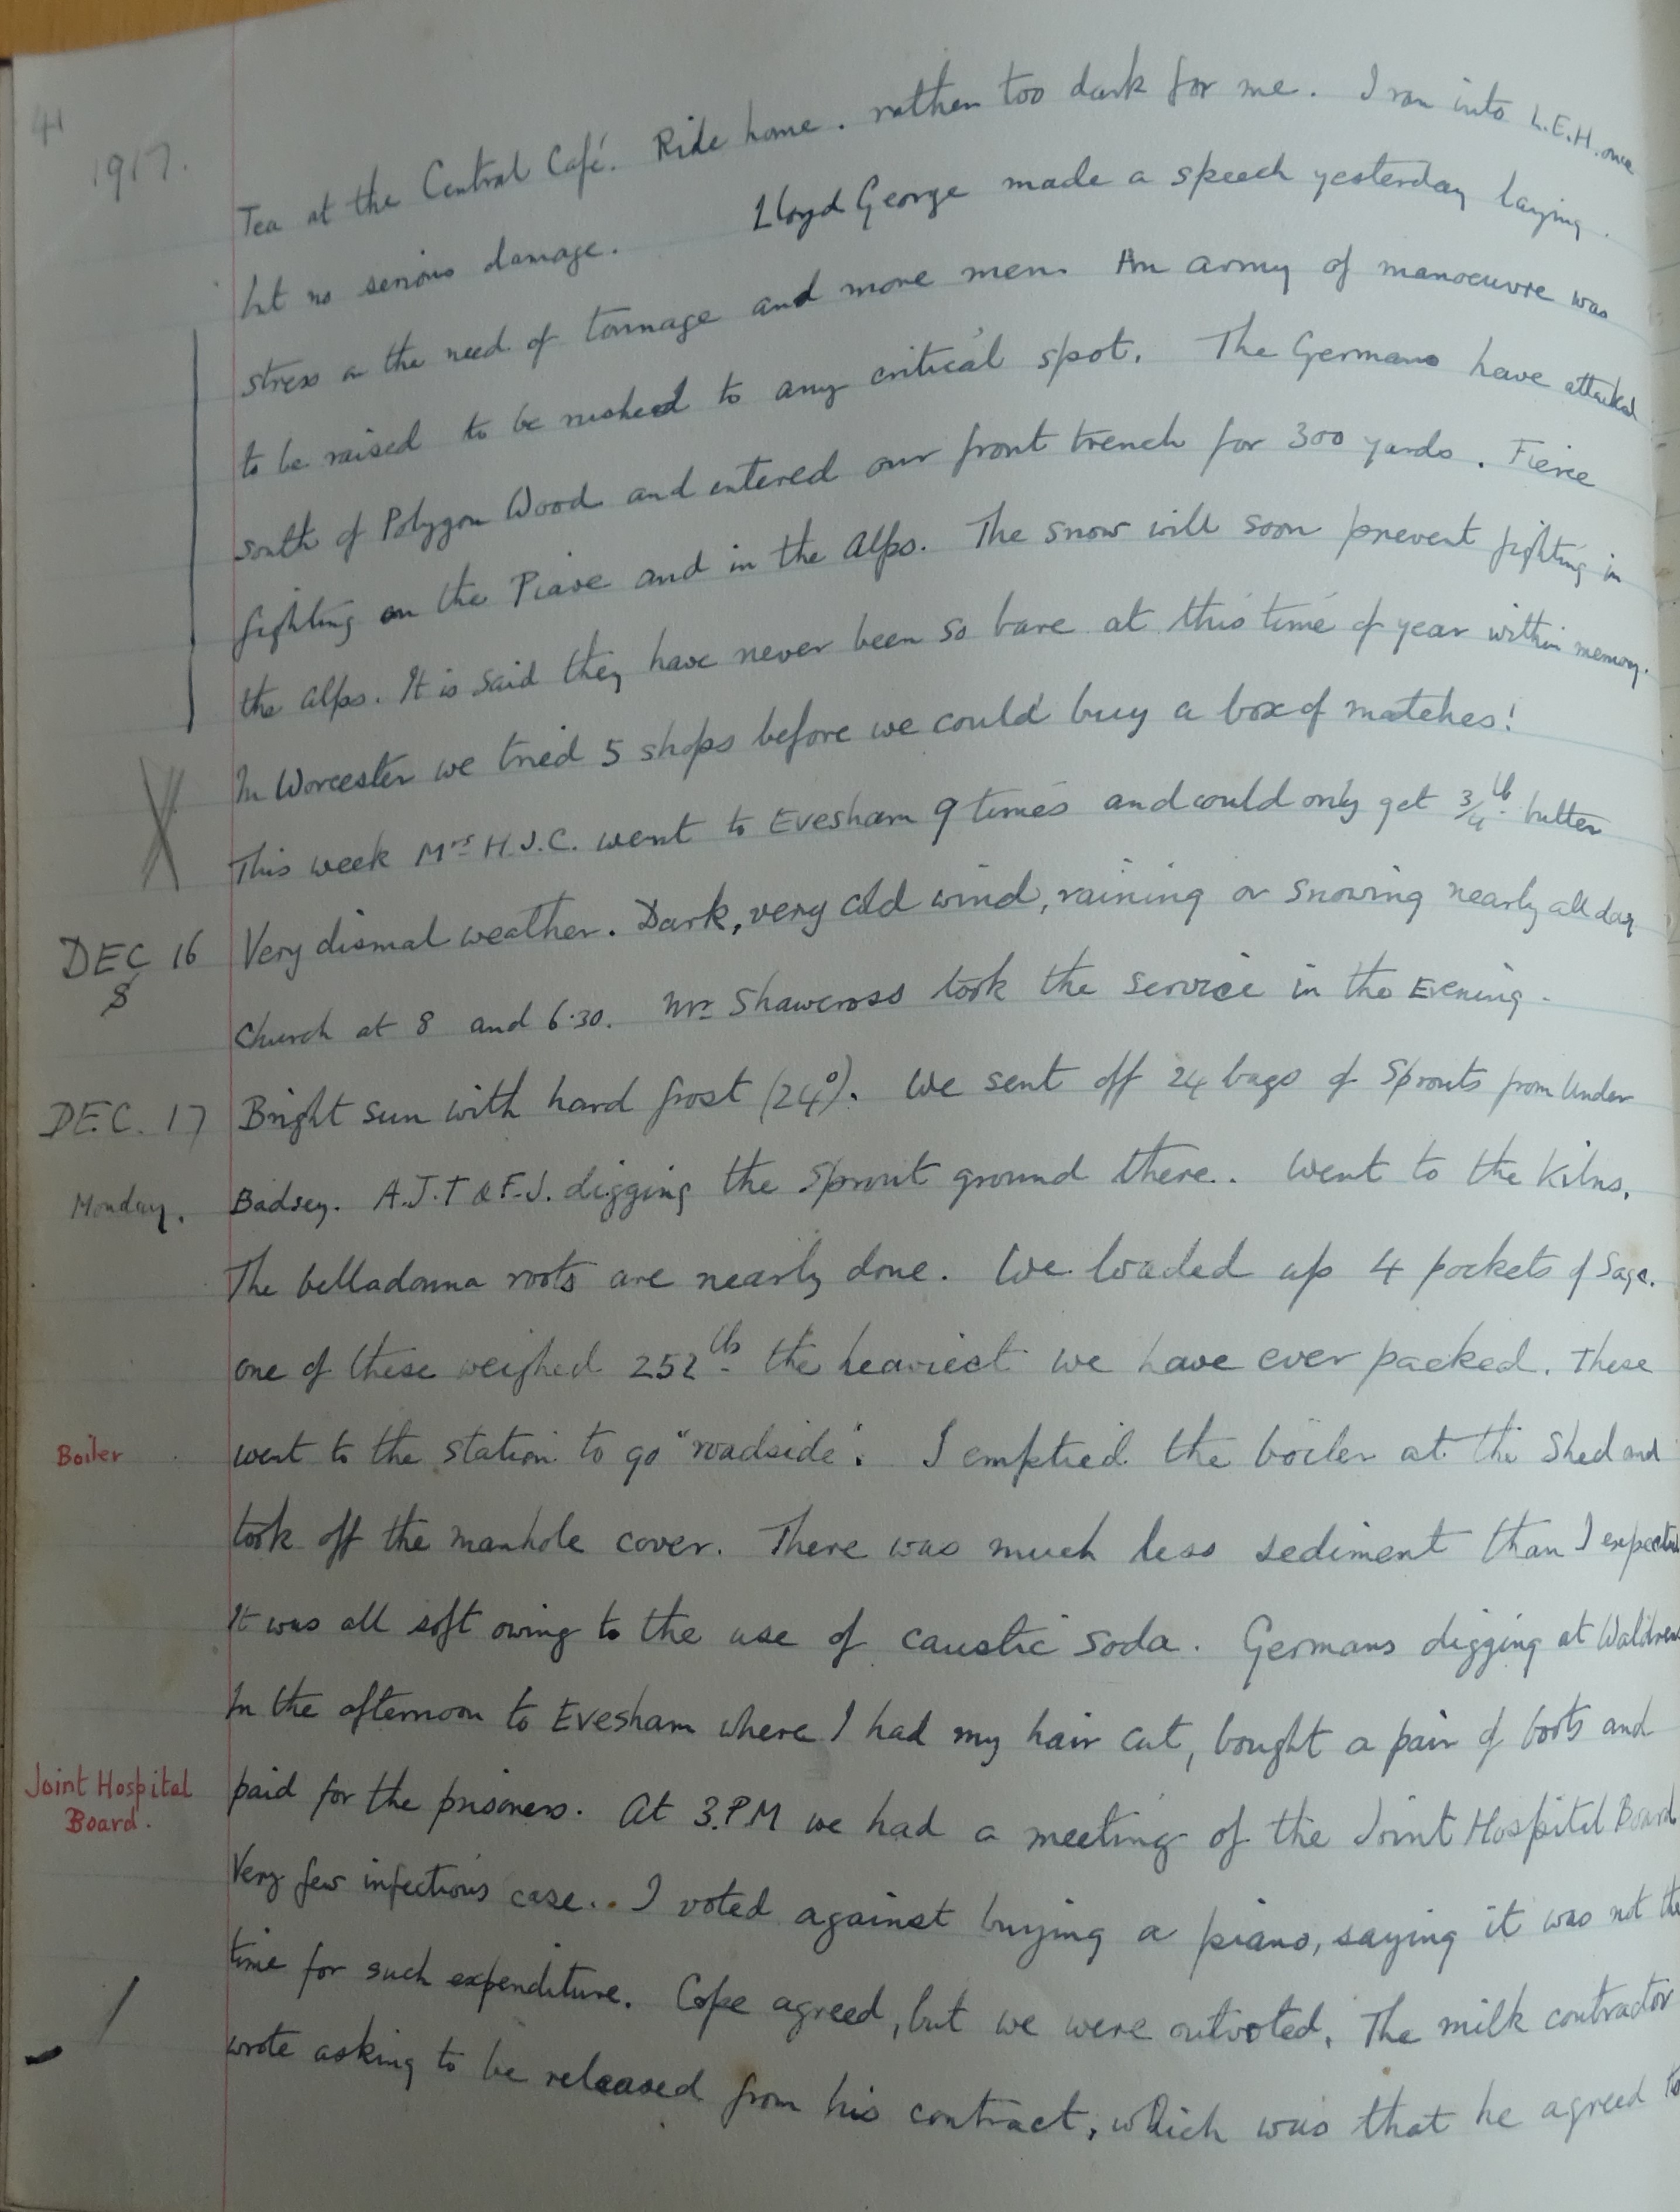 41
1917.
Tea at the Central Café. Ride home. rather too dark for me. I ran into L.E.H. once
but no serious damage. Lloyd George made a speech yesterday laying
stress on the need of tonnage and more men. An army of manoeuvre was
to be raised to be rushed to any critical spot. The Germans have attacked
south of Polygon Wood and entered our front trench for 300 yards. Fierce
fighting on the Piave and in the Alps. The snow will soon prevent fighting in
the Alps. It is said they have never been so bare at this time of year within memory.
In Worcester we tried 5 shops before we could buy a box of matches!
This week Mrs H.J.C. went to Evesham 9 times and could only get 3/4 lb butter
DEC 16 Very dismal weather. Dark, very cold wind, raining or snowing nearly all day
S Church at 8 and 6.30. Mr Shawcross took the service in the Evening.
DEC. 17 Bright sun with hard frost (24°). We sent off 24 bags of Sprouts from Under
Monday. Badsey. A.J.T & F.J. digging the Sprout ground there. Went to the Kilns.
The belladonna roots are nearly done. We loaded up 4 pockets of Sage.
one of these weighed 252 lbs the heaviest we have ever packed. These
Boiler went to the station to go "roadside". I emptied the boiler at the Shed and
took off the manhole cover. There was much less sediment than I expected
It was all soft owing to the use of caustic soda. Germans digging at
In the afternoon to Evesham where I had my hair cut, bought a pair of boots and
Joint Hospital paid for the prisoners. At 3.PM we had a meeting of the Joint Hospital Board
Board.
Very few infectious case.. I voted against buying a piano, saying it was not the
time for such expenditure. Cope agreed, but we were outvoted. The milk contractor
wrote asking to be released from his contract, which was that he agreed to